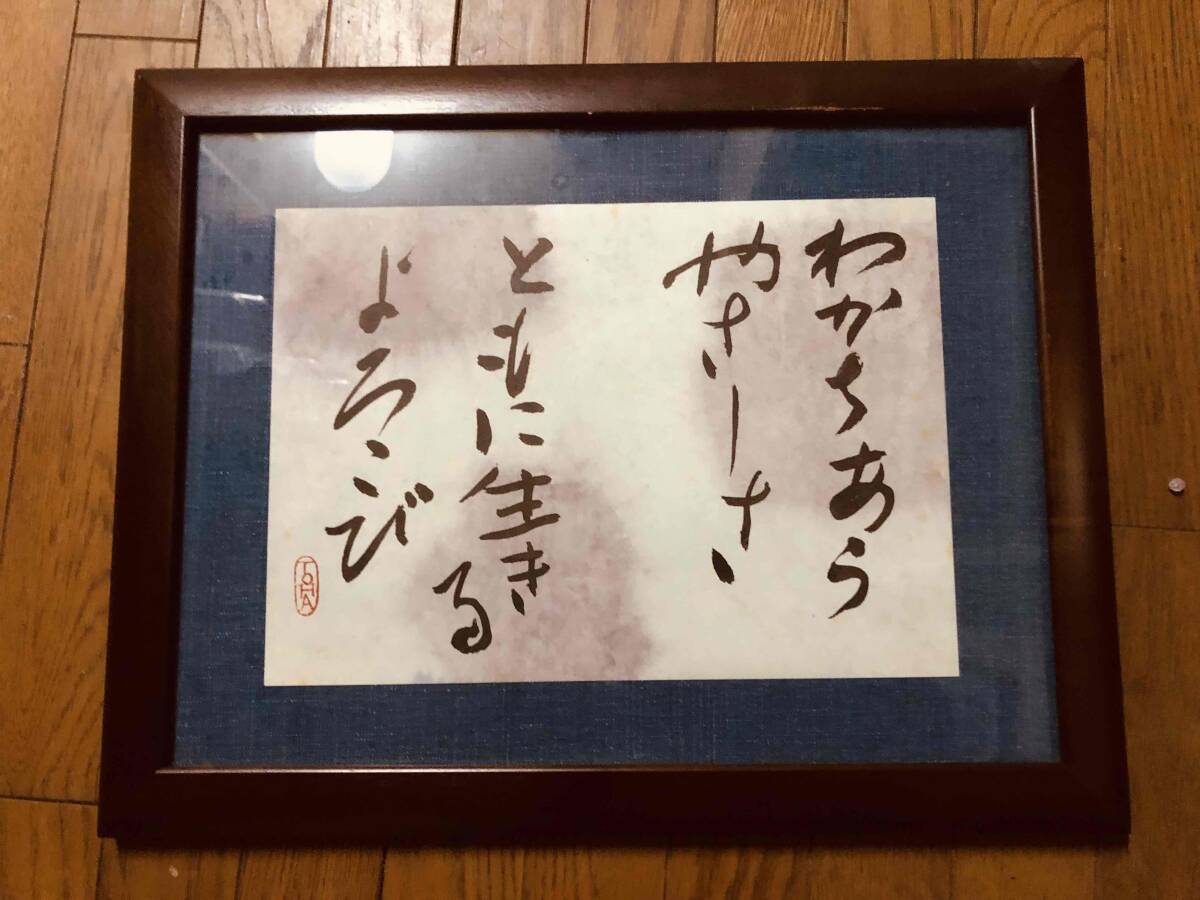 わかちあう
やさしさ
ともに生きる
よろこび
TOHA